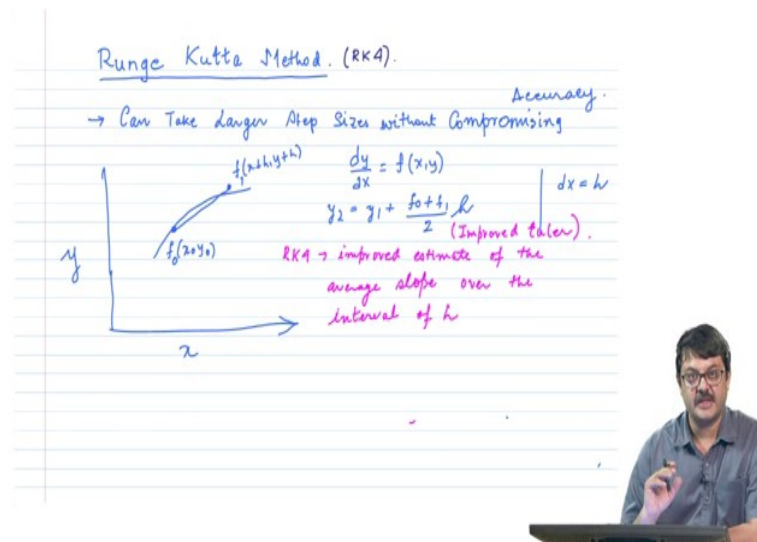 Runge Kutta Method. (RK4).
Accuracy.
→ Can Take Larger Step Sizes without Compromising
f₁(x+h, y+h)
dy/dx = f(x,y)
dx = h
y₂ = y₁ + (f₀+f₁)/2 h
(Improved Euler).
f₀(x₀y₀)
y
RK4 → improved estimate of the
average slope over the
interval of h
x